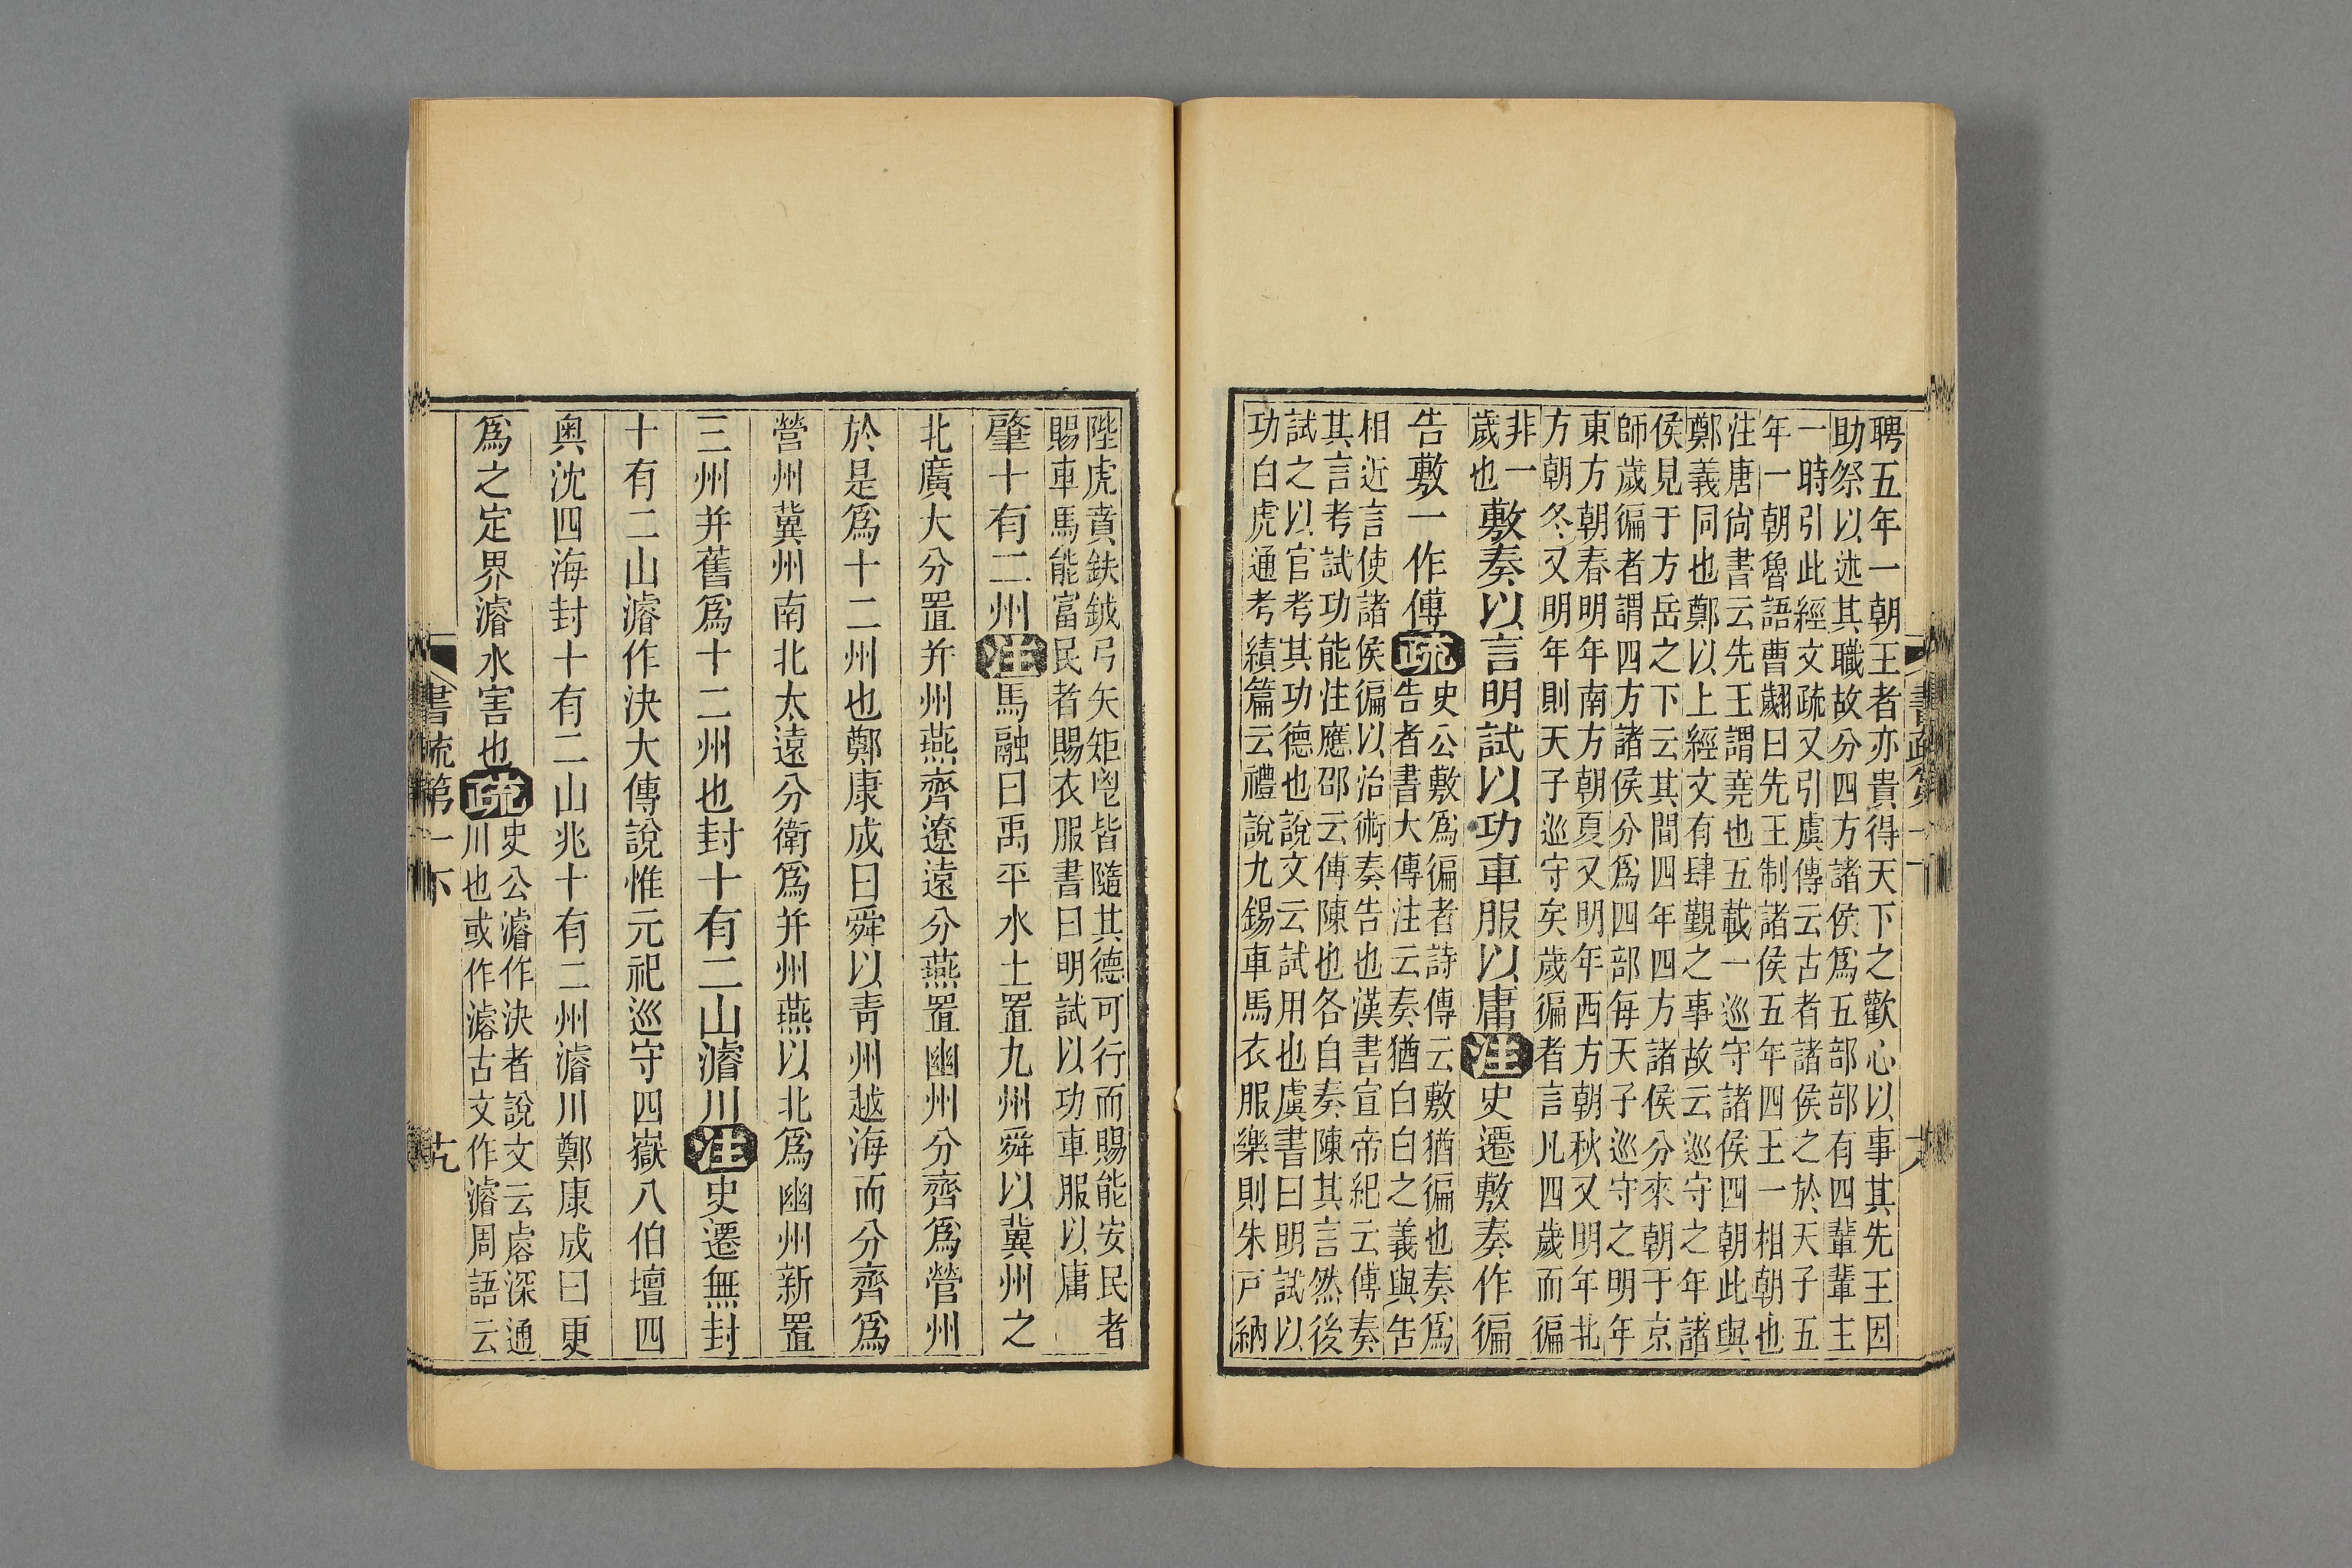 聘五年一朝王者亦貴得天下之歡心以事其先王因
助祭以述其職故分四方諸侯爲五部部有四輩輩主
一時引此經文疏又引虞傳云古者諸侯之於天子五
年一朝魯語曹劌曰先王制諸侯五年四王一相朝也
注唐尙書云先王謂堯也五載一巡守諸侯四朝此與
鄭義同也鄭以上經文有肆覲之事故云巡守之年諸
侯見于方岳之下云其間四年四方諸侯分來朝于京
師歲徧者謂四方諸侯分爲四部每天子巡守之明年
東方朝春明年南方朝夏又明年西方朝秋又明年北
方朝冬又明年則天子巡守矣歲徧者言凡四歲而徧
非一
歲也
敷奏以言明試以功車服以庸注史遷敷奏作徧
告敷一作傅疏
史公敷爲徧者詩傳云敷猶徧也奏爲
告者書大傳注云奏猶白白之義與告
相近言使諸侯徧以治術奏告也漢書宣帝紀云傅奏
其言考試功能注應邵云傅陳也各自奏陳其言然後
試之以官考其功德也說文云試用也虞書曰明試以
功白虎通考績篇云禮說九錫車馬衣服樂則朱戸納
陛虎賁鈇鉞弓矢矩鬯皆隨其德可行而賜能安民者
賜車馬能富民者賜衣服書曰明試以功車服以庸
肇十有二州注馬融曰禹平水土置九州舜以冀州之
北廣大分置并州燕齊遼遠分燕置幽州分齊爲營州
於是爲十二州也鄭康成曰舜以青州越海而分齊爲
營州冀州南北太遠分衛爲并州燕以北爲幽州新置
三州并舊爲十二州也封十有二山濬川注史遷無封
十有二山濬作決大傳說惟元祀巡守四嶽八伯壇四
奥沈四海封十有二山兆十有二州濬川鄭康成曰更
爲之定界濬水害也疏
史公濬作決者說文云睿深通
川也或作濬古文作濬周語云
書疏第一下